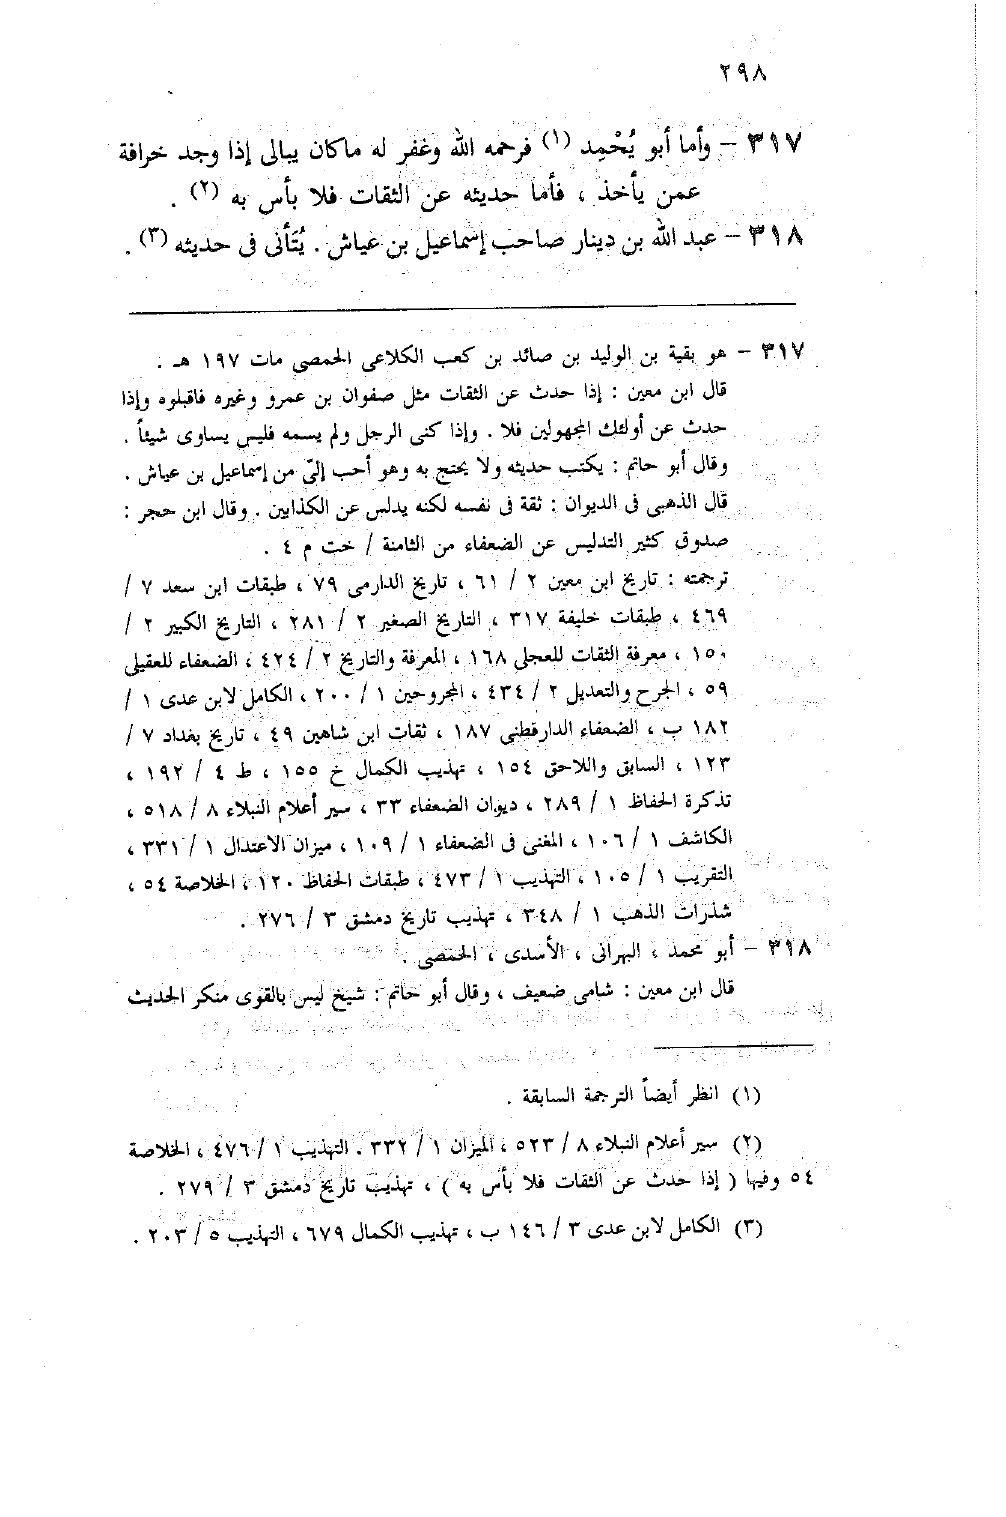 ٢٩٨
٣١٧ – وأما أبو يُحْمِد (١) فرحمه الله وغفر له ماكان يبالى إذا وجد خرافة
عمن يأخذ ، فأما حديثه عن الثقات فلا بأس به (٢) .
٣١٨ – عبد الله بن دينار صاحب إسماعيل بن عياش . يُتَأنى فى حديثه (٣) .
٣١٧ – هو بقية بن الوليد بن صائد بن كعب الكلاعى الحمصى مات ١٩٧ هـ .
قال ابن معين : إذا حدث عن الثقات مثل صفوان بن عمرو وغيره فاقبلوه وإذا
حدث عن أولئك المجهولين فلا . وإذا كنى الرجل ولم يسمه فليس يساوى شيئاً .
وقال أبو حاتم : يكتب حديثه ولا يحتج به وهو أحب إلىّ من إسماعيل بن عياش .
قال الذهبى فى الديوان : ثقة فى نفسه لكنه يدلس عن الكذابين . وقال ابن حجر :
صدوق كثير التدليس عن الضعفاء من الثامنة / خت م ٤ .
ترجمته : تاريخ ابن معين ٢ / ٦١ ، تاريخ الدارمى ٧٩ ، طبقات ابن سعد ٧ /
٤٦٩ ، طبقات خليفة ٣١٧ ، التاريخ الصغير ٢ / ٢٨١ ، التاريخ الكبير ٢ /
١٥٠ ، معرفة الثقات للعجلى ١٦٨ ، المعرفة والتاريخ ٢ / ٤٢٤ ، الضعفاء للعقيلى
٥٩ ، الجرح والتعديل ٢ / ٤٣٤ ، المجروحين ١ / ٢٠٠ ، الكامل لابن عدى ١ /
١٨٢ ب ، الضعفاء الدارقطنى ١٨٧ ، ثقات ابن شاهين ٤٩ ، تاريخ بغداد ٧ /
١٢٣ ، السابق واللاحق ١٥٤ ، تهذيب الكمال خ ١٥٥ ، ط ٤ / ١٩٢ ،
تذكرة الحفاظ ١ / ٢٨٩ ، ديوان الضعفاء ٣٣ ، سير أعلام النبلاء ٨ / ٥١٨ ،
الكاشف ١ / ١٠٦ ، المغنى فى الضعفاء ١ / ١٠٩ ، ميزان الاعتدال ١ / ٣٣١ ،
التقريب ١ / ١٠٥ ، التهذيب ١ / ٤٧٣ ، طبقات الحفاظ ١٢٠ ، الخلاصة ٥٤ ،
شذرات الذهب ١ / ٣٤٨ ، تهذيب تاريخ دمشق ٣ / ٢٧٦ .
٣١٨ – أبو محمد ، البهرانى ، الأسدى ، الحمصى .
قال ابن معين : شامى ضعيف ، وقال أبو حاتم : شيخ ليس بالقوى منكر الحديث
(١) انظر أيضاً الترجمة السابقة .
(٢) سير أعلام النبلاء ٨ / ٥٢٣ ، الميزان ١ / ٣٣٢ . التهذيب ١ / ٤٧٦ ، الخلاصة
٥٤ وفيها ( إذا حدث عن الثقات فلا بأس به ) ، تهذيب تاريخ دمشق ٣ / ٢٧٩ .
(٣) الكامل لابن عدى ٣ / ١٤٦ ب ، تهذيب الكمال ٦٧٩ ، التهذيب ٥ / ٢٠٣ .